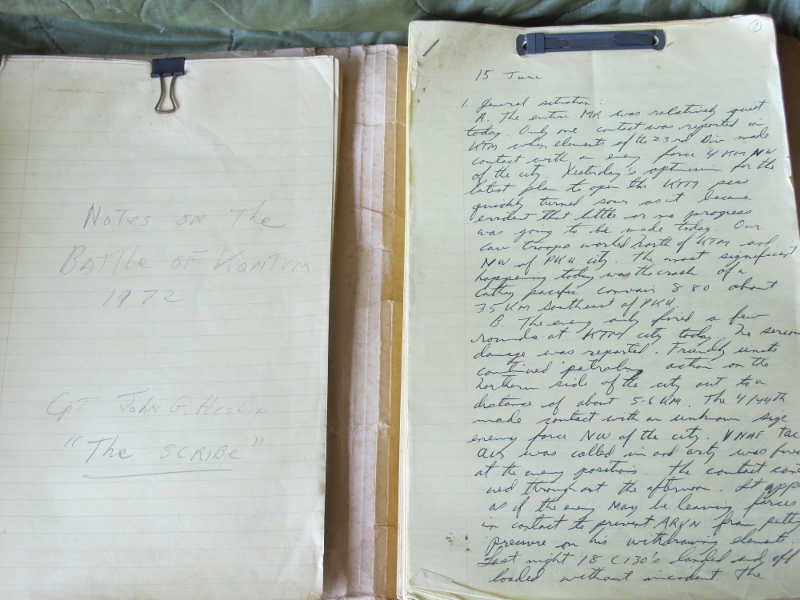 Notes on The
Battle of Kontum
1972
Cpt John G. Heslin
"The Scribe"
1
15 June
1. General situation:
A. The entire MR was relatively quiet
today. Only one contact was reported in
KTM when elements of the 23rd Div made
contact with a enemy force 4 KM NW
of the city. Yesterday's optimism for the
latest plan to open the KTM pass
quickly turned sour as it became
evident that little or no progress
was going to be made today. Our
cav troops worked north of KTM and
NW of PKU city. The most significant
happening today was the crash of a
Cathay pacific convair 880 about
35 KM southeast of PKU.
B. The enemy only fired a few
rounds at KTM city today. No serious
damage was reported. Friendly units
continued patroling action on the
northern side of the city out to a
distance of about 5-6 KM. The 4/44th
made contact with an unknown size
enemy force NW of the city. VNAF Tac
air was called in and arty was fired
at the enemy positions. The contact
throughout the afternoon. It
as if the enemy may be leaving forces
in contact to prevent ARVN from
pressure on his withdrawing
Last night 18 C130's landed and off
loaded without incident the